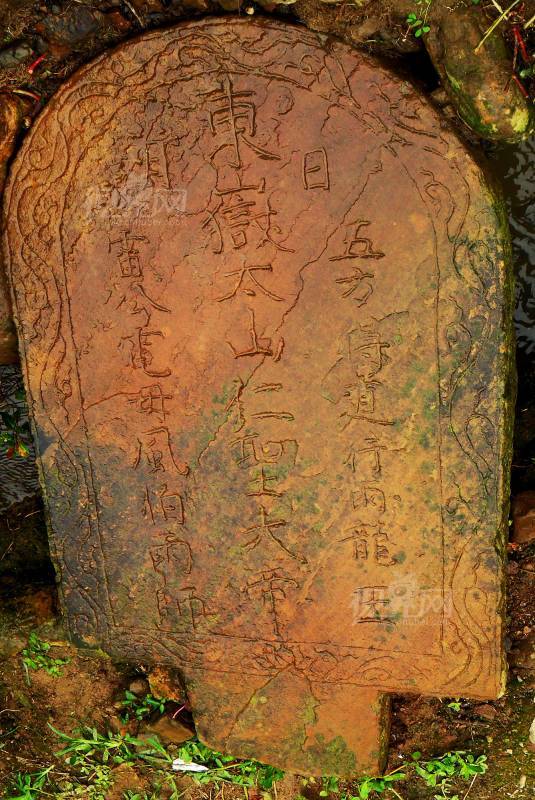 日
五方得道行雨龍王
東嶽太山仁聖大帝
月
雷公電母風伯雨師